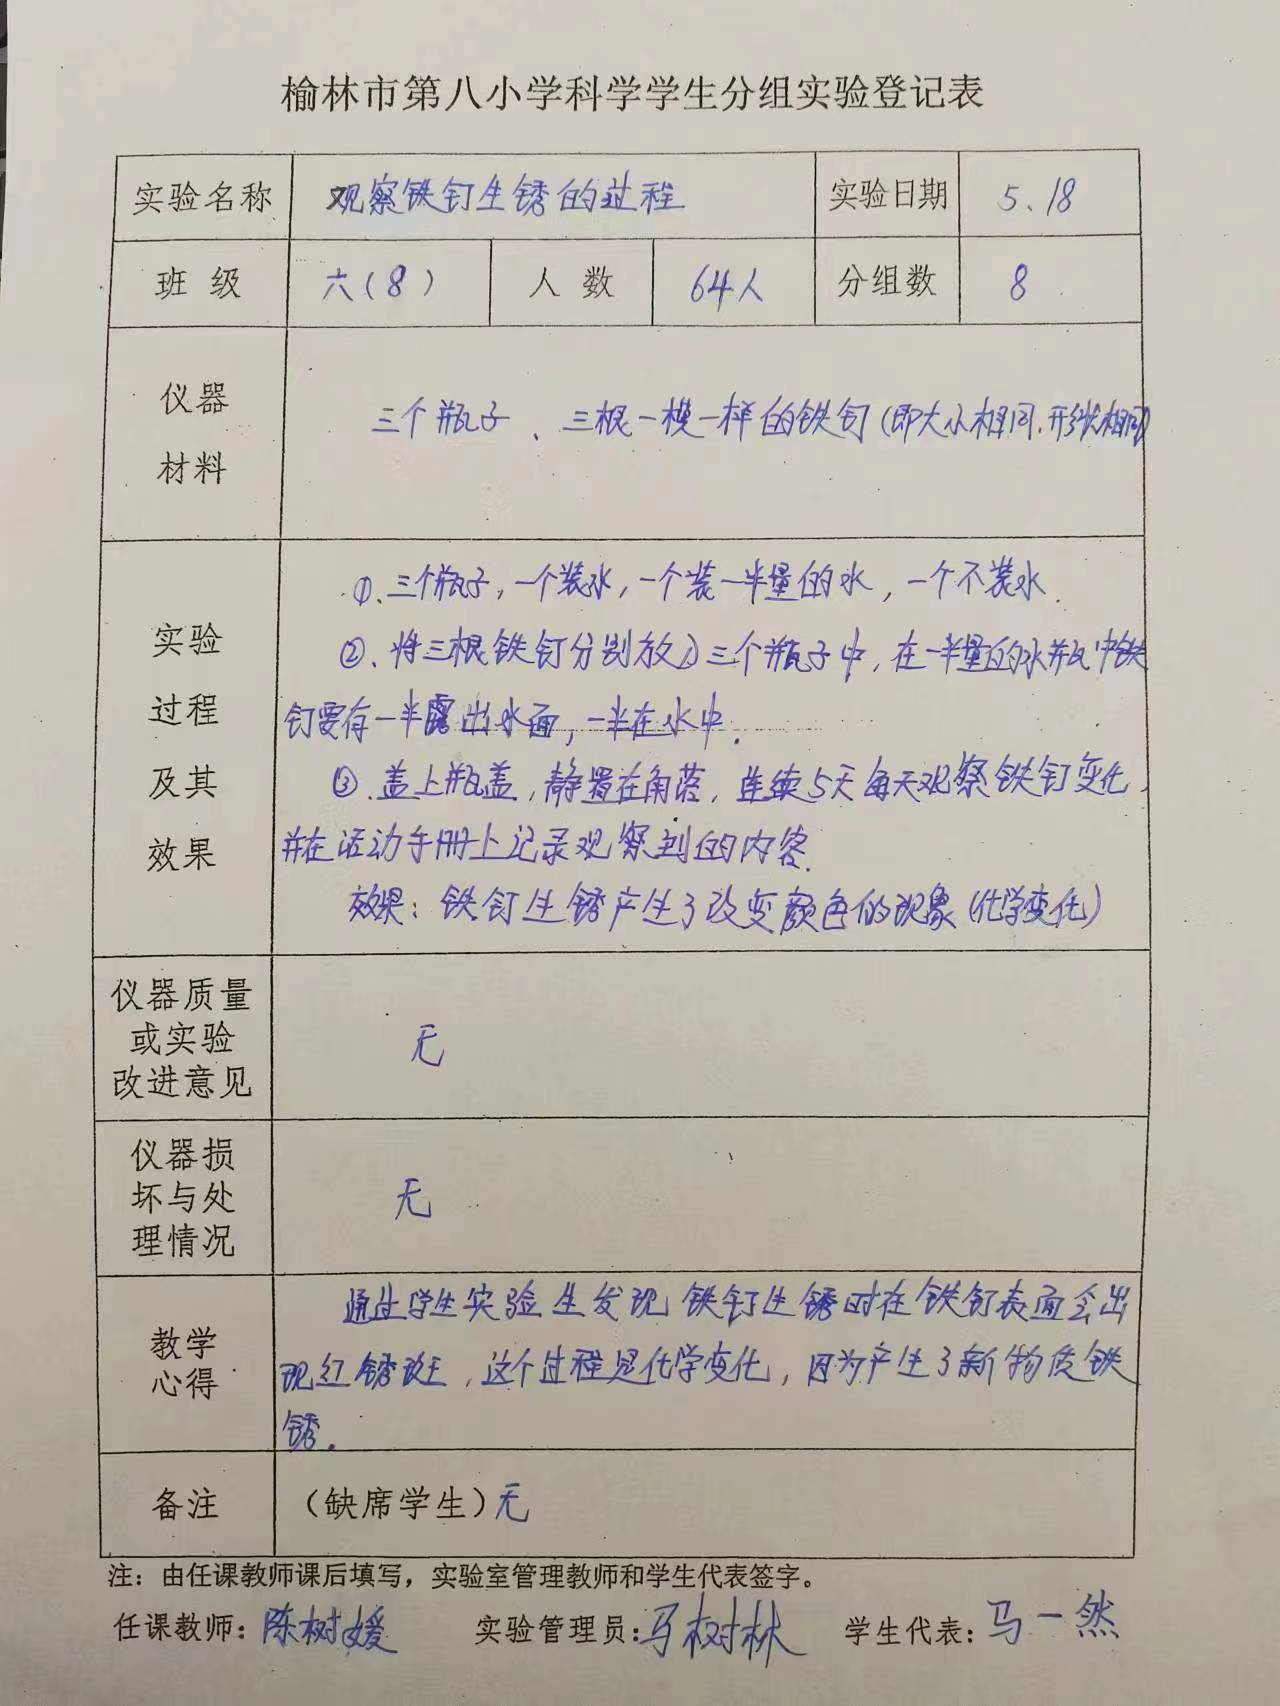 榆林市第八小学科学学生分组实验登记表
实验名称 观察铁钉生锈的过程 实验日期 5.18
班级 六(8) 人数 64人 分组数 8
仪器
材料
三个瓶子、三根一模一样的铁钉(即大小相同,形状相同)
实验
过程
及其
效果
①.三个瓶子,一个装水,一个装一半量的水,一个不装水.
②、将三根铁钉分别放入三个瓶子中,在一半量的水瓶中铁
钉要有一半露出水面,一半在水中.
③.盖上瓶盖,静置在角落,连续5天每天观察铁钉变化,
并在活动手册上记录观察到的内容.
效果:铁钉生锈产生了改变颜色的现象(化学变化)
仪器质量
或实验
改进意见
无
仪器损
坏与处
理情况
无
教学
心得
通过学生实验生发现铁钉生锈时在铁钉表面会出
现红锈斑,这个过程是化学变化,因为产生了新物质铁
锈.
备注 (缺席学生)无
注:由任课教师课后填写,实验室管理教师和学生代表签字。
任课教师:陈树媛 实验管理员:马树林 学生代表:马一然